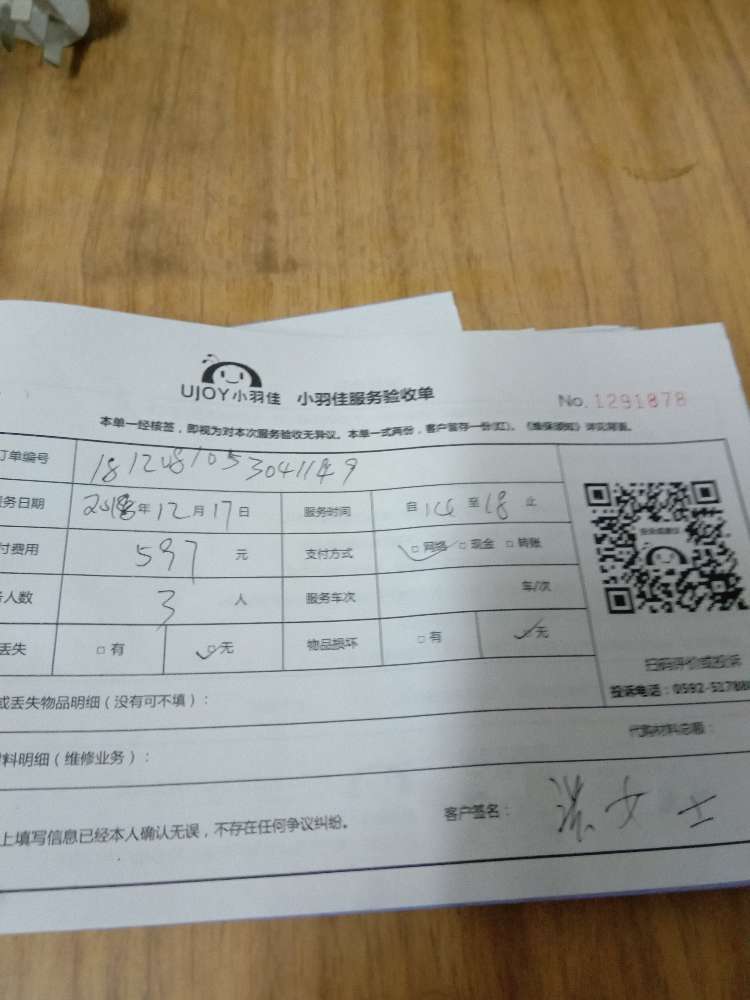 UJOY小羽佳 小羽佳服务验收单 No. 1291878
本单一经核签，即视为对本次服务验收无异议。本单一式两份，客户留存一份(红)。《维保须知》详见背面。
订单编号
务日期 2018年12月17日 服务时间 自 至18止
付费用 597元 支付方式 □网络 □现金 □转账
人数 3人 服务车次 车/次
丢失 □有 □无 物品损坏 □有 □无
扫码评价或投诉
投诉电话：0592-517888
或丢失物品明细（没有可不填）：
代购材料总额：
料明细（维修业务）：
客户签名： 女士
上填写信息已经本人确认无误，不存在任何争议纠纷。